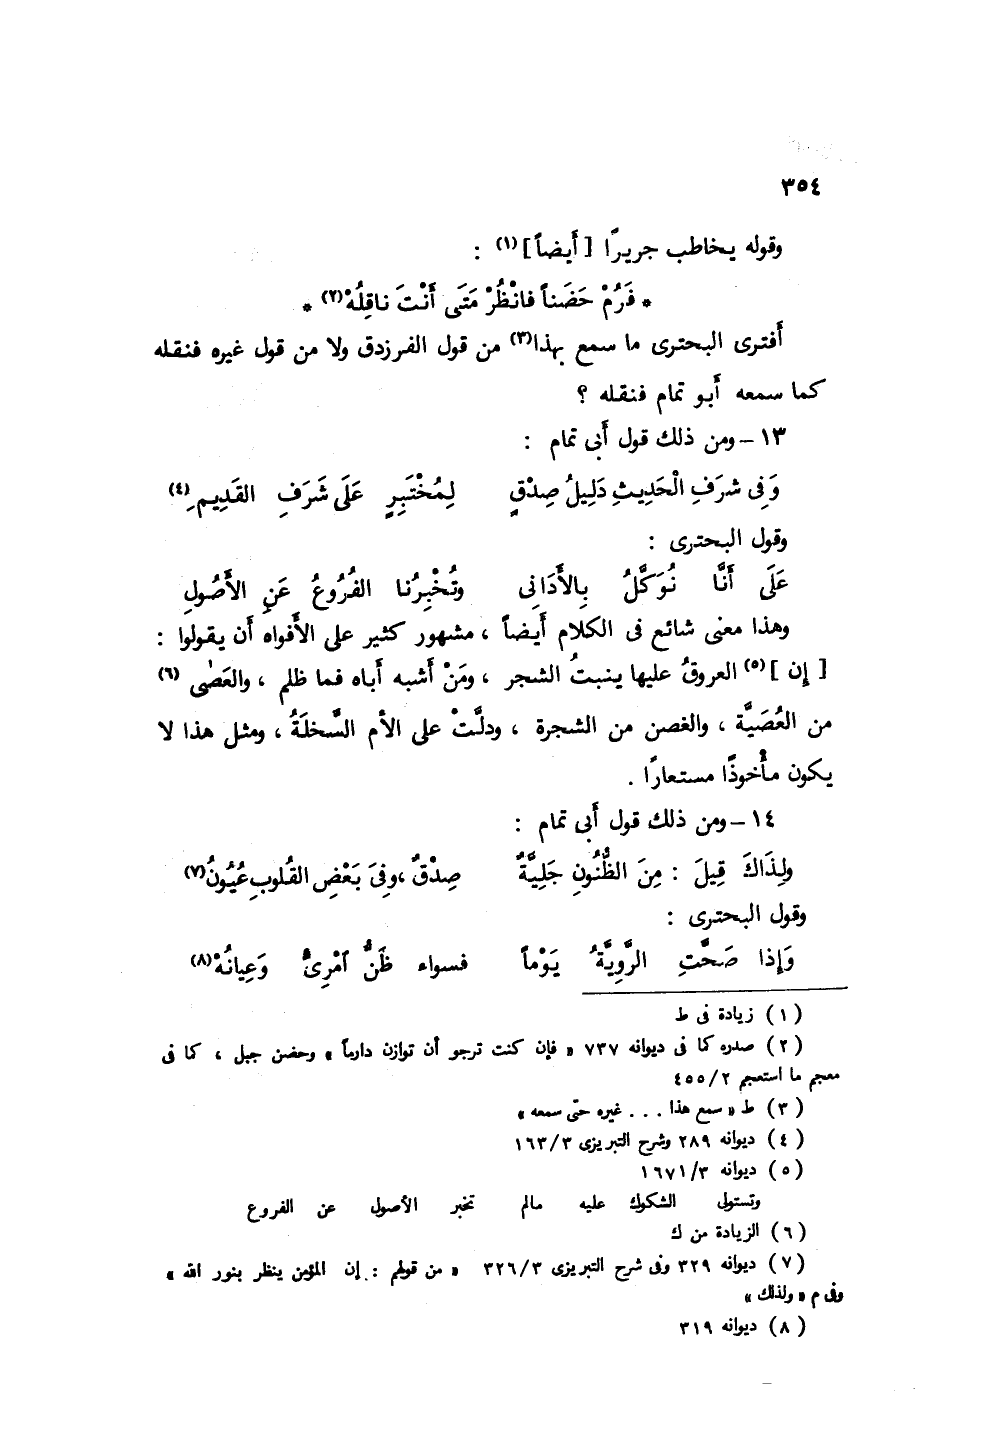 ٣٥٤
وقوله يخاطب جريرًا [ أيضاً ] (١) :
* فَرُمْ حَضَناً فانْظُرْ مَتَى أَنْتَ ناقِلُهْ (٢) *
أفترى البحترى ما سمع بهذا(٣) من قول الفرزدق ولا من قول غيره فنقله
كما سمعه أبو تمام فنقله ؟
١٣ – ومن ذلك قول أبى تمام :
وَفِى شرَفِ الْحَدِيثِ دَلِيلُ صِدْقٍ لِمُخْتَبِرٍ عَلَى شَرَفِ القَدِيمِ (٤)
وقول البحترى :
عَلَى أَنَّا نُوَكَّلُ بِالأَدَانِى وتُخْبِرُنا الفُرُوعُ عَنِ الأَصُولِ
وهذا معنى شائع فى الكلام أيضاً ، مشهور كثير على الأفواه أن يقولوا :
[ إن ] (٥) العروقُ عليها ينبتُ الشجر ، ومَنْ أشبه أباه فما ظلم ، والعَصٰى (٦)
من العُصَيَّة ، والغصن من الشجرة ، ودلَّتْ على الأم السَّخلَةُ ، ومثل هذا لا
يكون مأْخوذًا مستعارًا .
١٤ – ومن ذلك قول أبى تمام :
ولِذَاكَ قِيلَ : مِنَ الظُّنُونِ جَلِيَّةٌ صِدْقٌ ، وفِىَ بَعْضِ القُلوبِ عُيُونُ (٧)
وقول البحترى :
وَإِذا صَحَّتِ الرَّوِيَّةُ يَوْماً فسواء ظَنُّ آمْرِئٍ وَعِيانُهْ (٨)
( ١ ) زيادة فى ط
( ٢ ) صدره كما فى ديوانه ٧٣٧ « فإن كنت ترجو أن توازن دارماً » وحضن جبل ، كما فى
معجم ما استعجم ٢/ ٤٥٥
( ٣ ) ط « سمع هذا . . . غيره حتى سمعه »
( ٤ ) ديوانه ٢٨٩ وشرح التبريزى ٣/ ١٦٣
( ٥ ) ديوانه ٣/ ١٦٧١
وتستولى الشكوك عليه مالم تخبر الأصول عن الفروع
( ٦ ) الزيادة من ك
( ٧ ) ديوانه ٣٢٩ وفى شرح التبريزى ٣/ ٣٢٦ « من قولهم : إن المؤمن ينظر بنور الله »
وفى م « ولذلك »
( ٨ ) ديوانه ٣١٩